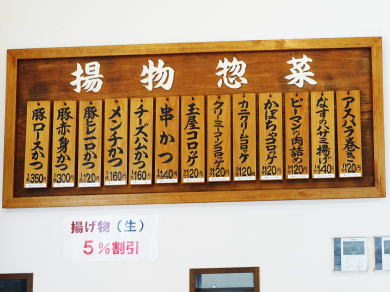 揚物惣菜
豚ロースかつ 350
豚赤身かつ 300
豚ヒレ一口かつ 120
メンチかつ 160
チーズハムかつ 160
串かつ 140
玉屋コロッケ 120
クリーミーコーンコロッケ 120
カニクリームコロッケ 120
かぼちゃコロッケ 120
ピーマンの肉詰め 120
なすのハサミ揚げ 140
アスパラ巻き 120
揚げ物（生）
5%割引